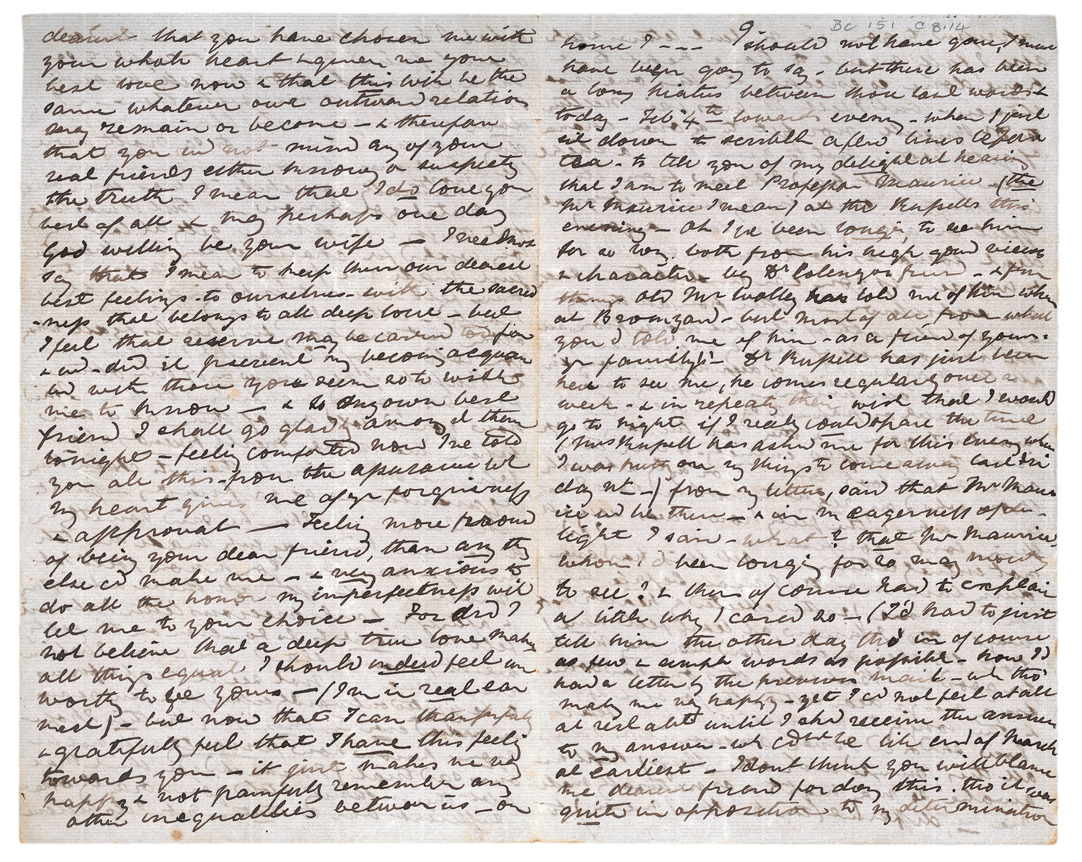 dearest - that you have chosen me with
your whole heart & given me your
best love now & that this will be the
same whatever our outward relation
may remain or become - & therefore
that you wd not mind any of your
real friends either knowing or suspecting
the truth I mean that I do love you
best of all & may perhaps one day
God willing be your wife - I need not
say that I mean to keep then our dearest
best feelings - to ourselves - with the sacred
-ness that belongs to all deep love - but
I feel that reserve may be carried too far
& wd - did it prevent my becoming acquain
ted with those you seem so to wish
me to know - & so my own best
friend I shall go gladly among them
tonight - feeling comforted now I've told
you all this - from the assurance wh
my heart gives me of yr forgiveness
& approval - Feeling more proud
of being your dear friend, than any thg
else cd make me - & very anxious to
do all the honor my imperfectness will
let me to your choice - For did I
not believe that a deep true love makes
all things equal I should indeed feel un
worthy to be yours - (I'm in real ear
nest) - but now that I can thankfully
& gratefully feel that I have this feeling
towards you - it just makes me very
happy & not painfully remember any
other inequalities between us - or
BC 151 C8:14
home I --- I should not have gone I must
have been going to say - but there has been
a long hiatus between those last words &
today - Feb 4th towards evening - when I just
sit down to scribble a few lines before
tea - to tell you of my delight at hearing
that I am to meet Professor Maurice (the
Mr Maurice I mean) at the Russells this
evening - oh I've been longing to see him
for so long both from his high good views
& character - his Dr Colenso's friend - & from
things old Mr Walley has told me of him when
at Bromyard - but most of all from what
you'd told me of him - as a friend of yours -
yr family's - Dr Russell has just been
here to see me, he comes regularly once a
week - & in repeating their wish that I would
go to night if I really could spare the time
(Mrs Russell has asked me for this eveng when
I was putting on my things to come away last Fri
day nt -) from my letters, said that Mr Mau
ice wd be there - & in my eagerness of de-
light I said - what? that Mr Maurice,
whom I'd been longing for so many months
to see? & then of course had to explain
a little why I cared so - (I'd had to just
tell him the other day tho' in of course
as few & simple words as possible - how I'd
had a letter by the previous mail - wh tho'
making me very happy - yet I cd not feel at all
at rest abt until I shd receive the answer
to my answer - wh cdn't be till end of March
at earliest - I don't think you will blame
me dearest friend for doing this - tho' it was
quite in opposition to my determination